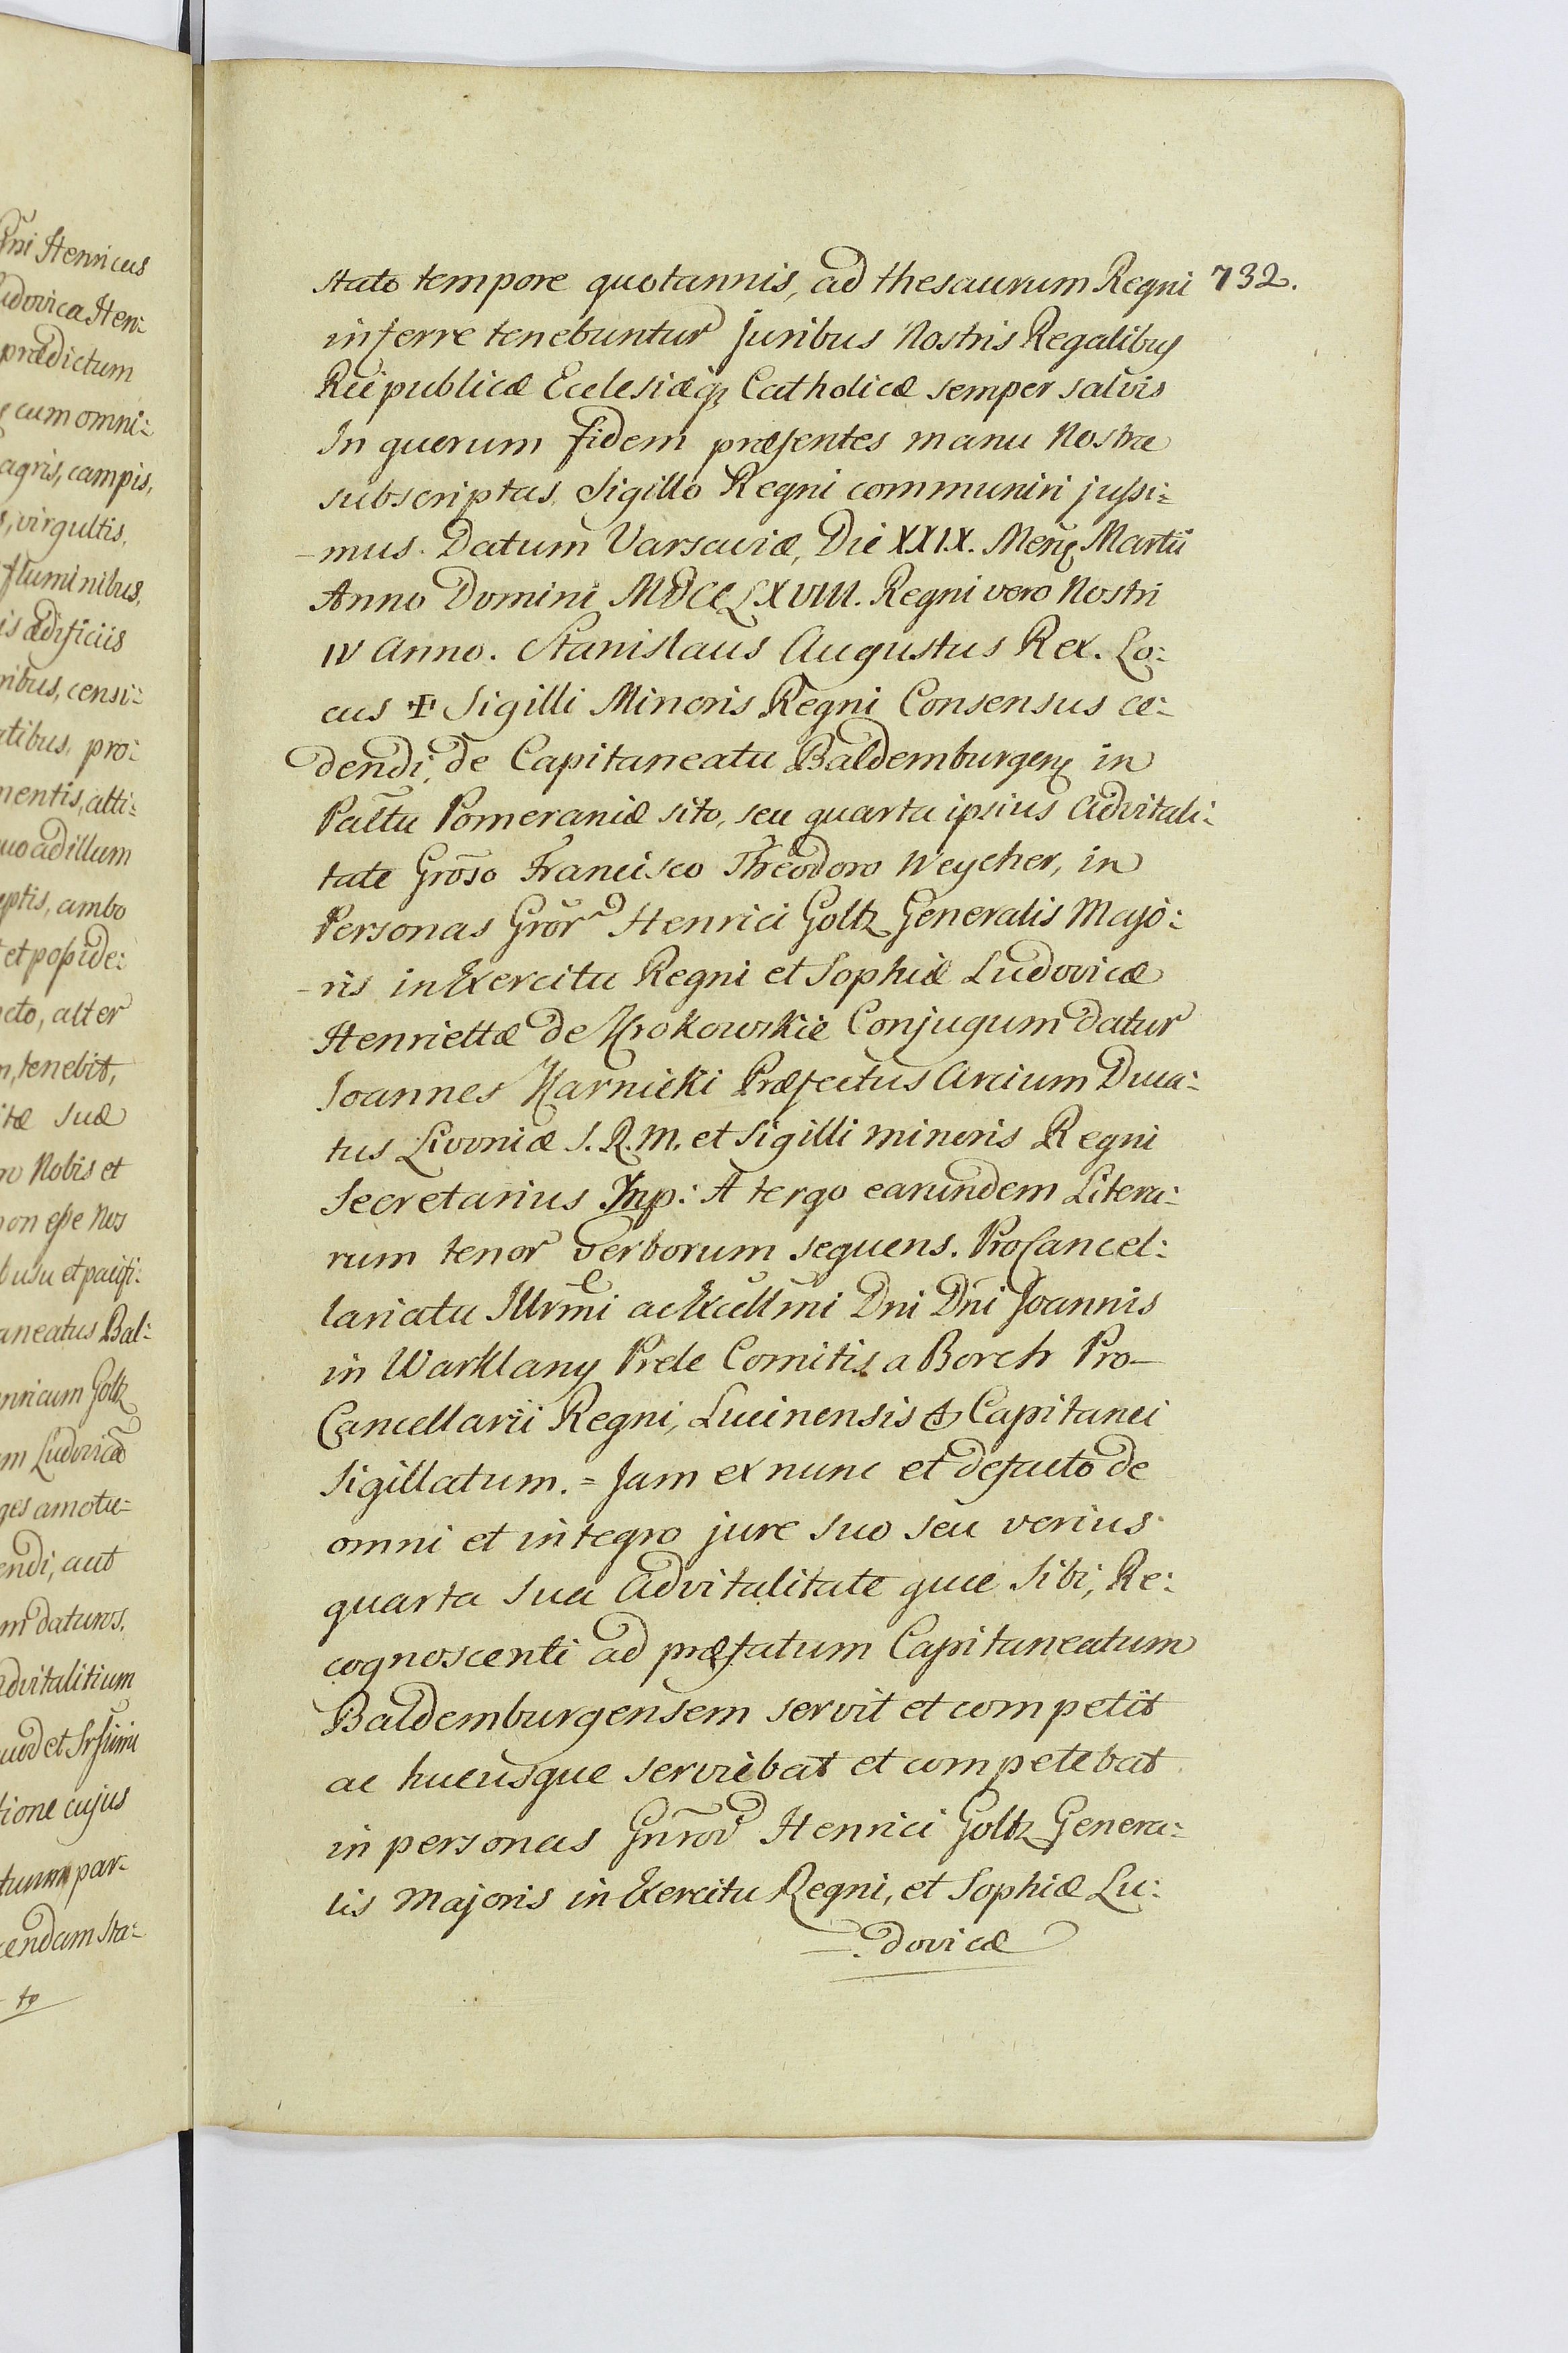 ñi Henricus
udovica Hen:
prædictum
cum omni:
agris, campis,
virgultis,
fluminibus,
is ædificiis
ribus, censi:
atibus, pro:
mentis, atti:
uo ad illum
eptis, ambo
et posside:
cto, alter
m, tenebit,
itæ suæ
ro Nobis et
non esse Nos
b usu et paciffi:
aneatus Bal:
enricum Goltz
m Ludovicã
ges amotu:
endi, aut
m daturos.
advitalitium
uod et
tione cujus
par:
endam sta:
to
stato tempore quotannis, ad thesaurum Regni 732.
inferre tenebuntur Juribus Nostris Regalibus
Reipublicæ Ecclesiæq; Catholicæ semper salvis
In quorum fidem præsentes manu Nostra
subscriptas Sigillo Regni communiri jussi:
-mus. Datum Varsaviæ, Die XXIX. Menẽ Martii
Anno Domini MDCCLXVIII. Regni vero Nostri
IV Anno. Stanislaus Augustus Rex. Lo:
cus ✠ Sigilli Minoris Regni Consensus ce:
dendi, de Capitaneatu Baldemburgenẽ in
Paltu Pomeraniæ sito, seu quarta ipsius Advitali:
tate Grõso Francisco Theodoro Weycher, in
Personas Grõr Henrici Goltz Generalis Majo:
-ris in Exercitu Regni et Sophiæ Ludovicæ
Henriettæ de Krokowskie Conjugum datur
Joannes Karnicki Præfectus Arcium Duca:
tus Livoniæ S. R. M. et Sigilli minoris Regni
Secretarius Mp: A tergo earundem Litera:
rum tenor verborum sequens. ProCancel:
lariatu Illrmi ac Excellmi Dni Dñi Joannis
in Warklany Prele Comitis a Borch Pro-
Cancellarii Regni, Lucinensis & Capitanei
Sigillatum. = Jam ex nunc et defacto de
omni et integro jure suo seu verius
quarta sua Advitalitate quæ Sibi, Re:
cognoscenti ad præfatum Capitaneatum
Baldemburgensem servit et competit
ac hucusque serviebat et competebat
in personas Gnror Henrici Goltz Genera:
lis Majoris in Exercitu Regni, et Sophiæ Lu:
-. dovicæ